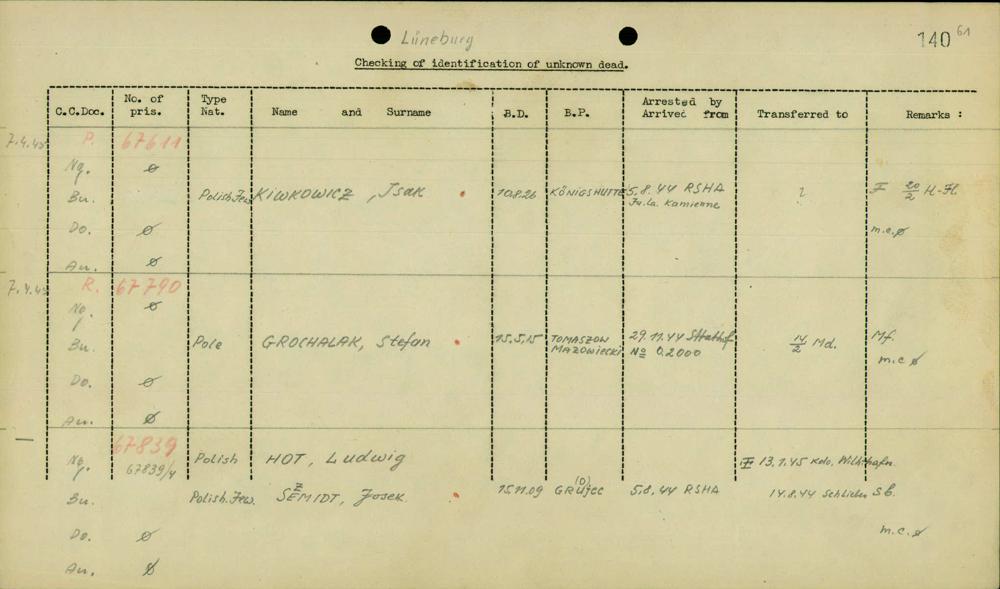 Lüneburg
140 61
Checking of identification of unknown dead.
C.C.Doc. No. of pris. Type Nat. Name and Surname B.D. B.P. Arrested by Arrived from Transferred to Remarks :
7.4.45 P. 67611
Ng. ø
Bu. Polish.Jew KIWKOWICZ, Isak 10.8.26 KÖNIGSHÜTTE 5.8.44 RSHA ? 20/2 H-Fl.
Fu.La. Kamienne
Do. ø m.c.ø
Au. ø
7.4.45 R. 67790
Ng. ø
Bu. Pole GROCHALAK, Stefan 15.5.15 TOMASZOW MAZOWIECKI 29.11.44 14/2 Md. Mf.
No 0.2000
m.c.ø
Do. ø
Au. ø
67839
Ng. 67839/4 Polish HOT, Ludwig 13.1.45 Kdo. Wilhhafn.
Bu. Polish.Jew. SEMIDT, Josek 15.11.09 GRUJEC 5.8.44 RSHA 14.8.44 Schlieben Sb.
Z
(O)
Do. ø m.c.ø
Au. ø